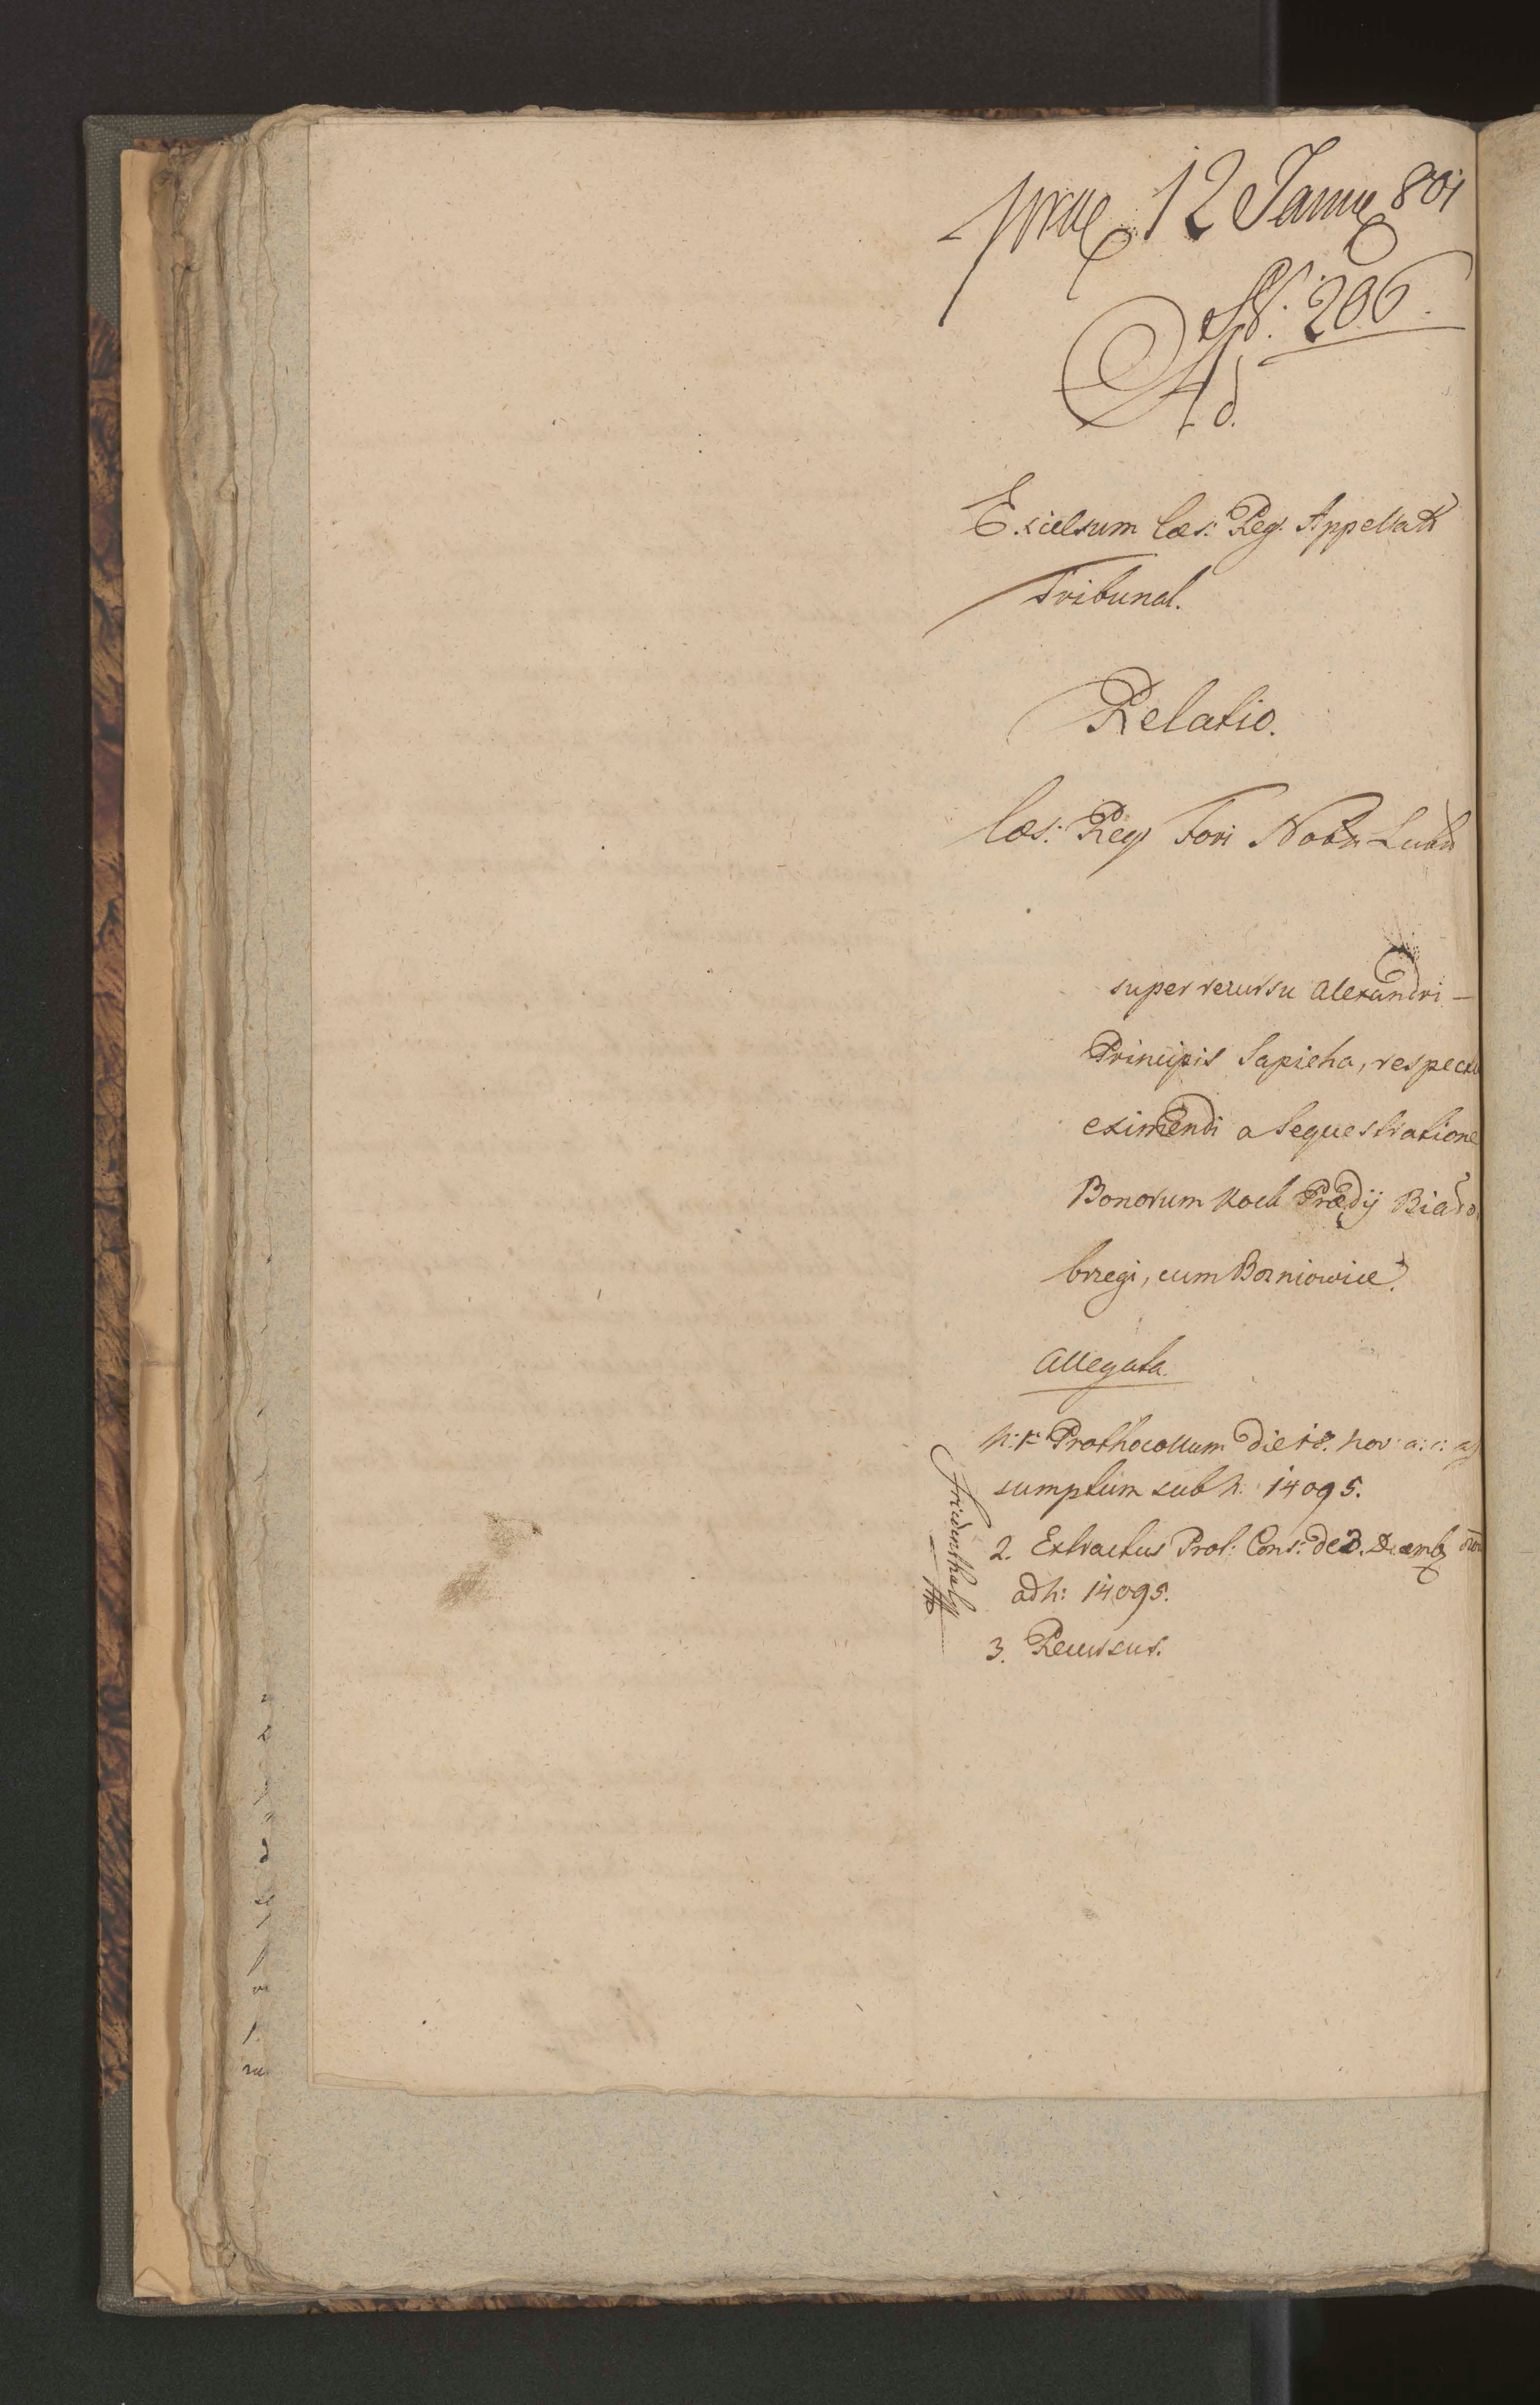 prae 12 Janue 801
N. 206.
Ad
Excelsum Caes: Reg: Appellat
Tribunal.
Relatio.
Caes: Reg Fori Nobn Lubln
super recursu Alexandri —
Principis Sapieha, respectu
eximendi a Sequestratione
Bonorum Kock Praedij Biało
brzegi, cum Borniowice.
Allegata.
N: 1mo Prothocollum die 18. Nov: a: c:
sumptum sub N: 14095.
2. Extractus Prot: Cons: de 3. Decemb
ad N: 14095.
3. Recursus.
Friedenthal